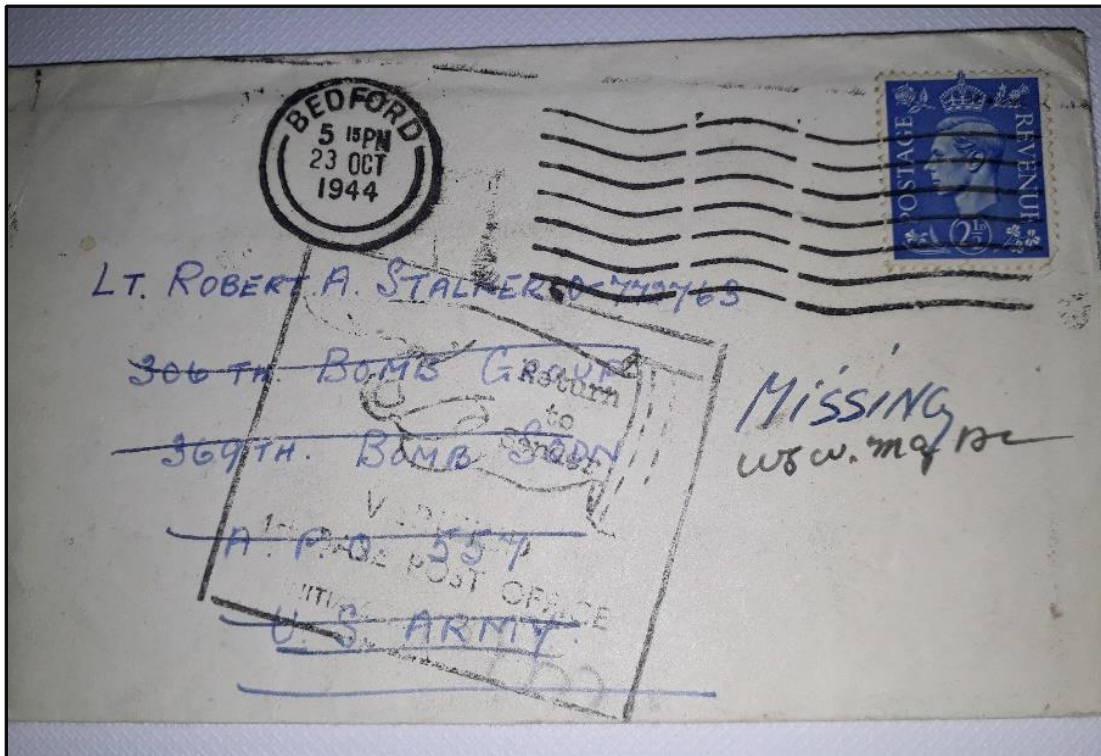 BEDFORD
5 15PM
23 OCT
1944
POSTAGE
REVENUE
2½D
LT. ROBERT A. STALKER O-772763
306 TH. BOMB GROUP
369TH. BOMB SQDN
A. P. O. 557
U. S. ARMY.
Return
to
Sender
BASE POST OFFICE
MISSING